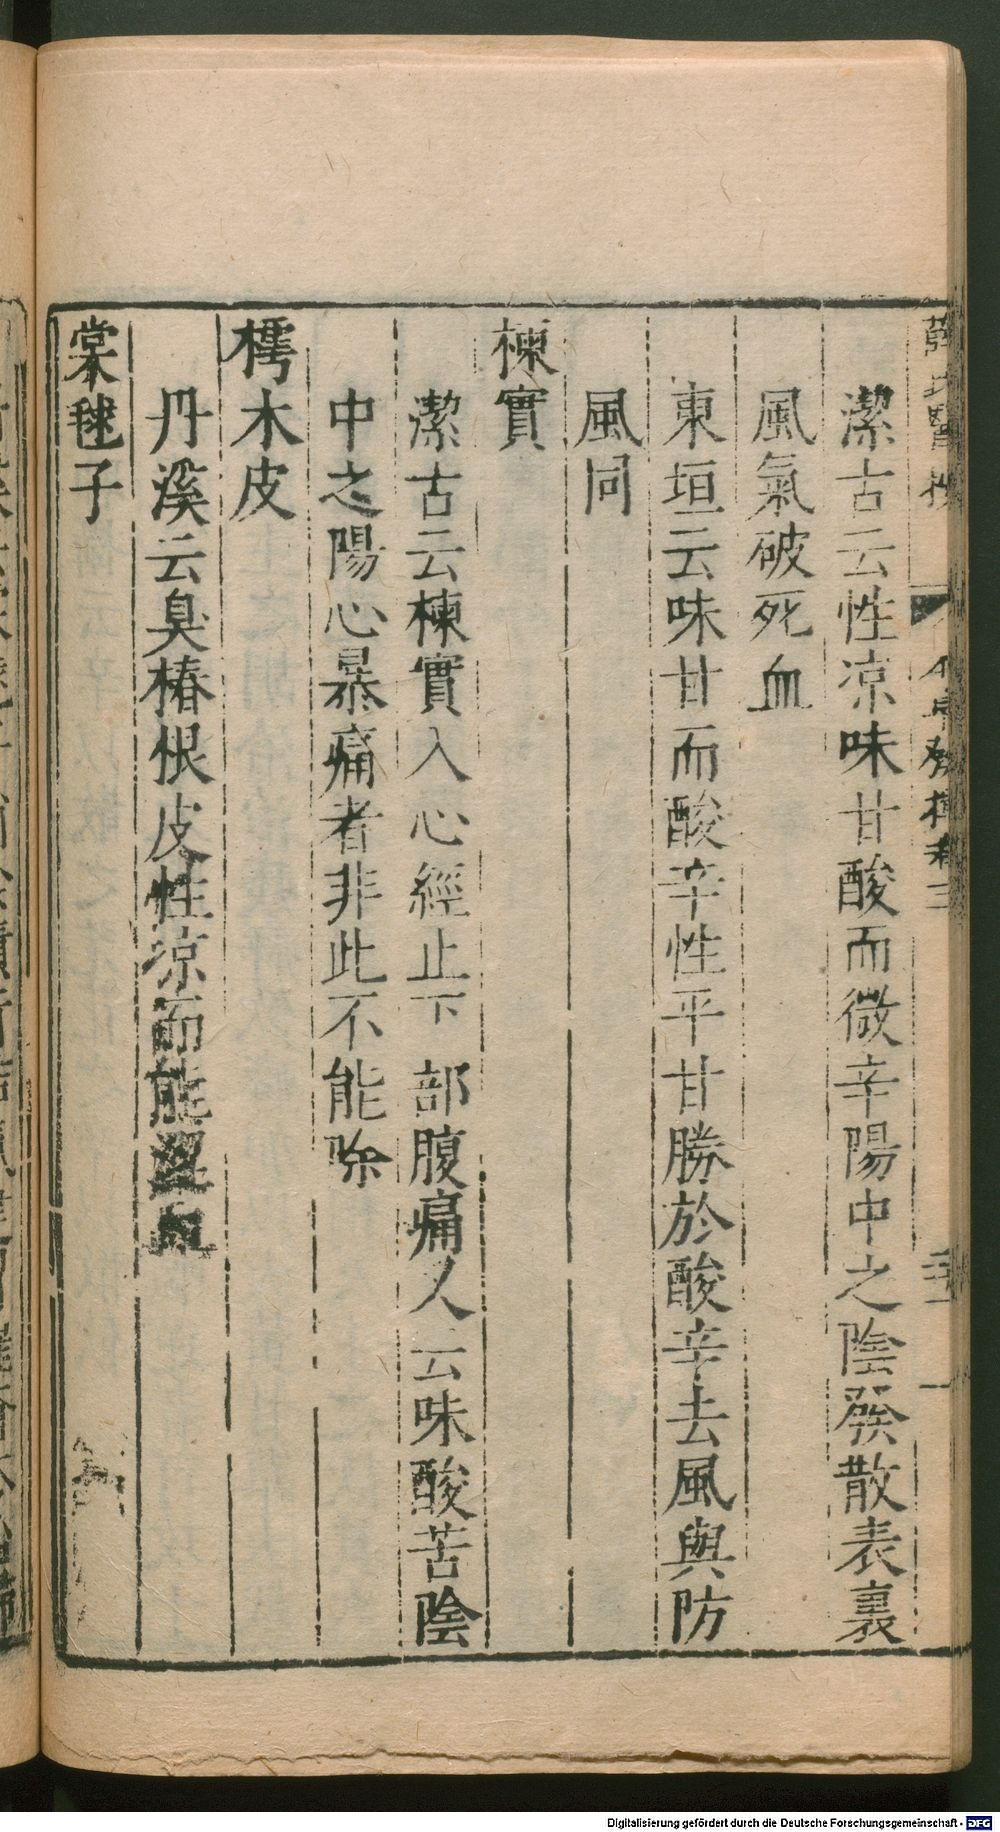 潔古云性凉味甘酸而微辛陽中之陰發散表裏
風氣破死血
東垣云味甘而酸辛性平甘勝於酸辛去風與防
風同
楝實
潔古云楝實入心經止下部腹痛又云味酸苦陰
中之陽心暴痛者非此不能除
樗木皮
丹溪云臭椿根皮性凉而能澀血
棠毬子
Digitalisierung gefördert durch die Deutsche Forschungsgemeinschaft - DFG